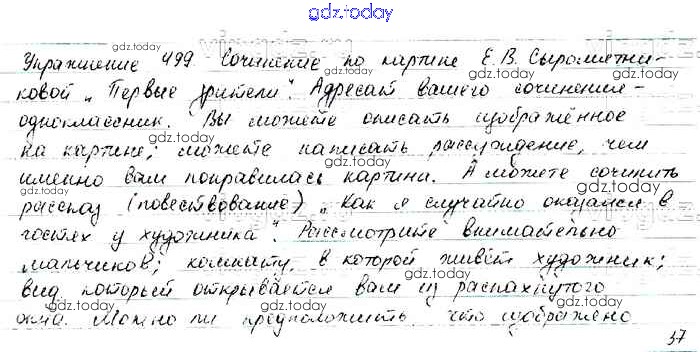 gdz.today
Упражнение 499. Сочинение по картине Е. В. Сыромятни-
ковой „Первые зрители". Адресат вашего сочинения -
одноклассник. Вы можете описать изображённое
на картине; можете написать рассуждение, чем
именно вам понравилась картина. А можете сочинить
рассказ (повествование) „Как я случайно оказался в
гостях у художника". Рассмотрите внимательно
мальчиков; комнату, в которой живёт художник;
вид, который открывается вам из распахнутого
окна. Можно ли предположить, что изображено
37